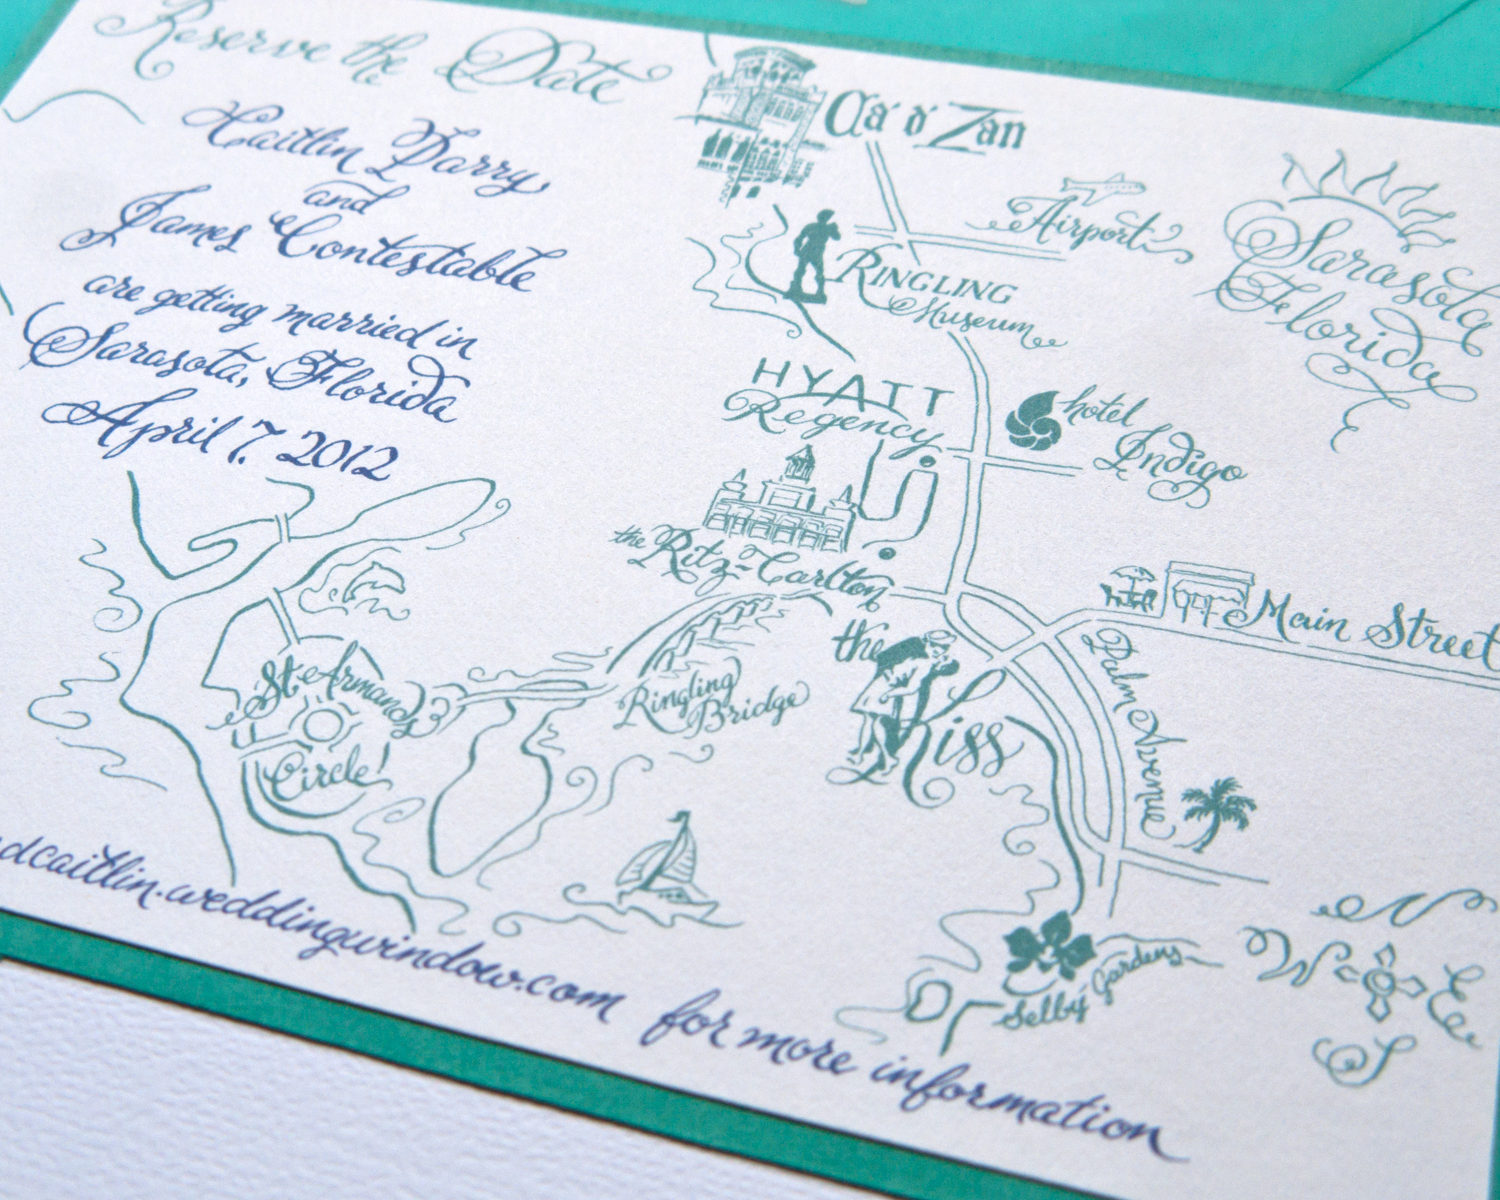 Reserve the Date
Caitlin Darry
and
James Contestable
are getting married in
Sarasota, Florida
April 7, 2012
Ca' d' Zan
Airport
Ringling
Museum
Sarasota
Florida
HYATT
Regency
hotel
Indigo
the Ritz-Carlton
Main Street
Palm Avenue
the
Kiss
Ringling
Bridge
St. Armands
Circle!
Selby Gardens
N
W E
S
dcaitlin.weddingwindow.com for more information